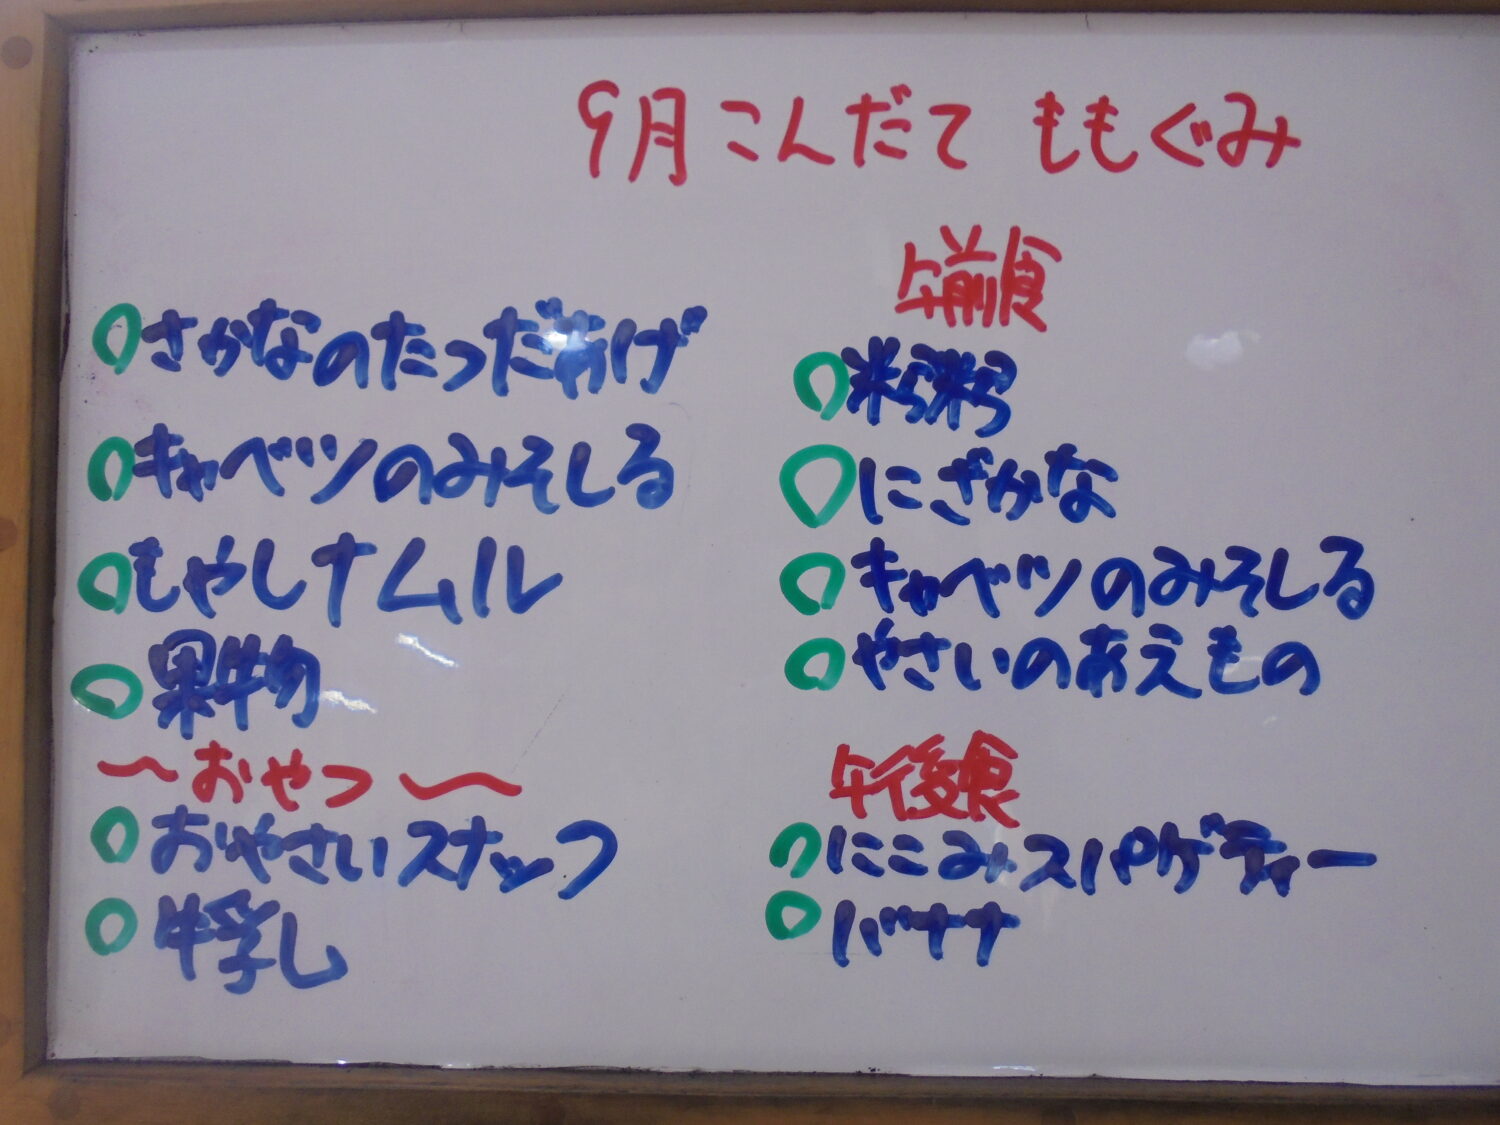 9月こんだて ももぐみ
さかなのたつだあげ
キャベツのみそしる
もやしナムル
果物
〜おやつ〜
おやさいスナック
牛乳
午前食
にざかな
キャベツのみそしる
やさいのあえもの
午後食
にこみスパゲティー
バナナ